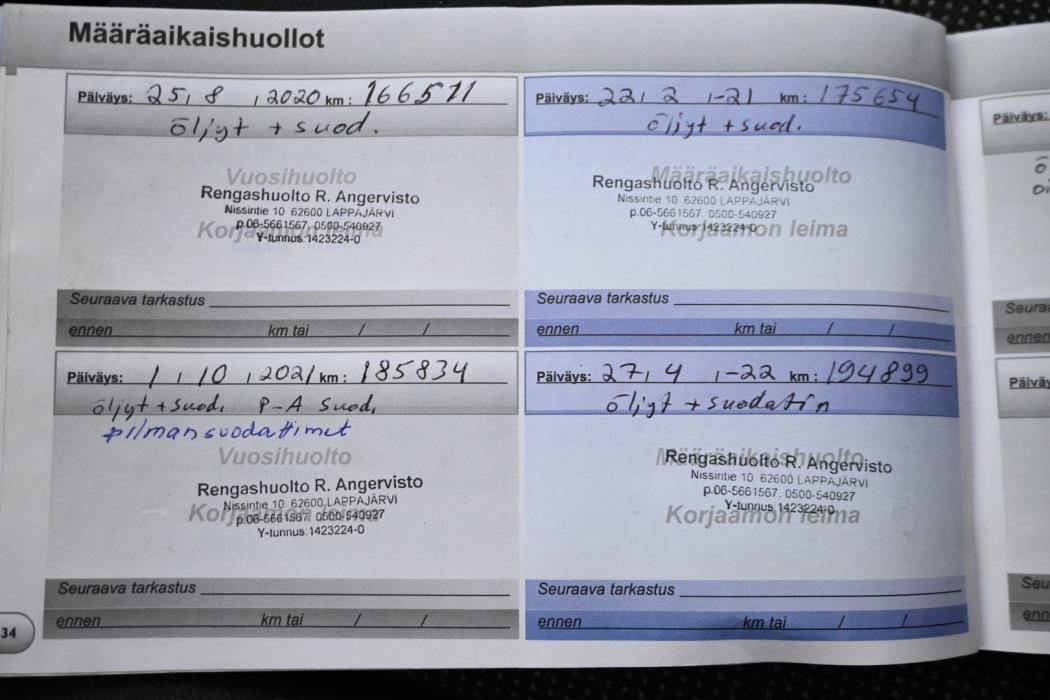 Määräaikaishuollot
Päiväys: 25, 8 , 2020 km: 166511
öljyt + suod.
Vuosihuolto
Rengashuolto R. Angervisto
Nissintie 10 62600 LAPPAJÄRVI
p.06-5661567, 0500-540927
Korjaamon leima
Y-tunnus:1423224-0
Seuraava tarkastus
ennen km tai / /
Päiväys: 22, 2 , -21 km: 175654
öljyt + suod.
Määräaikaishuolto
Rengashuolto R. Angervisto
Nissintie 10 62600 LAPPAJÄRVI
p.06-5661567. 0500-540927
Y-tunnus:1423224-0
Korjaamon leima
Seuraava tarkastus
ennen km tai / /
Päiväys: 1 , 10 , 2021 km: 185834
öljyt + suod. P-A suod,
pilmansuodattimet
Vuosihuolto
Rengashuolto R. Angervisto
Nissintie 10 62600 LAPPAJÄRVI
p.06-5661567. 0500-540927
Korjaamon leima
Y-tunnus:1423224-0
Seuraava tarkastus
ennen km tai / /
Päiväys: 27, 4 , -22 km: 194899
öljyt + suodatin
Määräaikaishuolto
Rengashuolto R. Angervisto
Nissintie 10 62600 LAPPAJÄRVI
p.06-5661567. 0500-540927
Y-tunnus:1423224-0
Korjaamon leima
Seuraava tarkastus
ennen km tai / /
34
Päiväys:
ennen